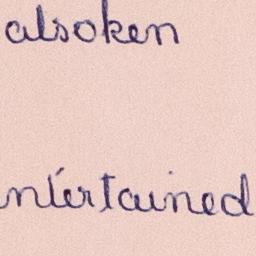 alsoken
ntertained